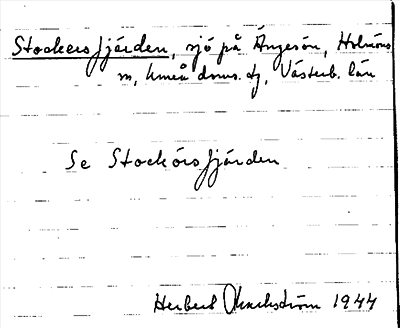 Stockersfjärden, sjö på Ängesön, Holmöns
sn, Umeå doms. tg, Västerb. län
Se Stockörsfjärden
Herbert 1944